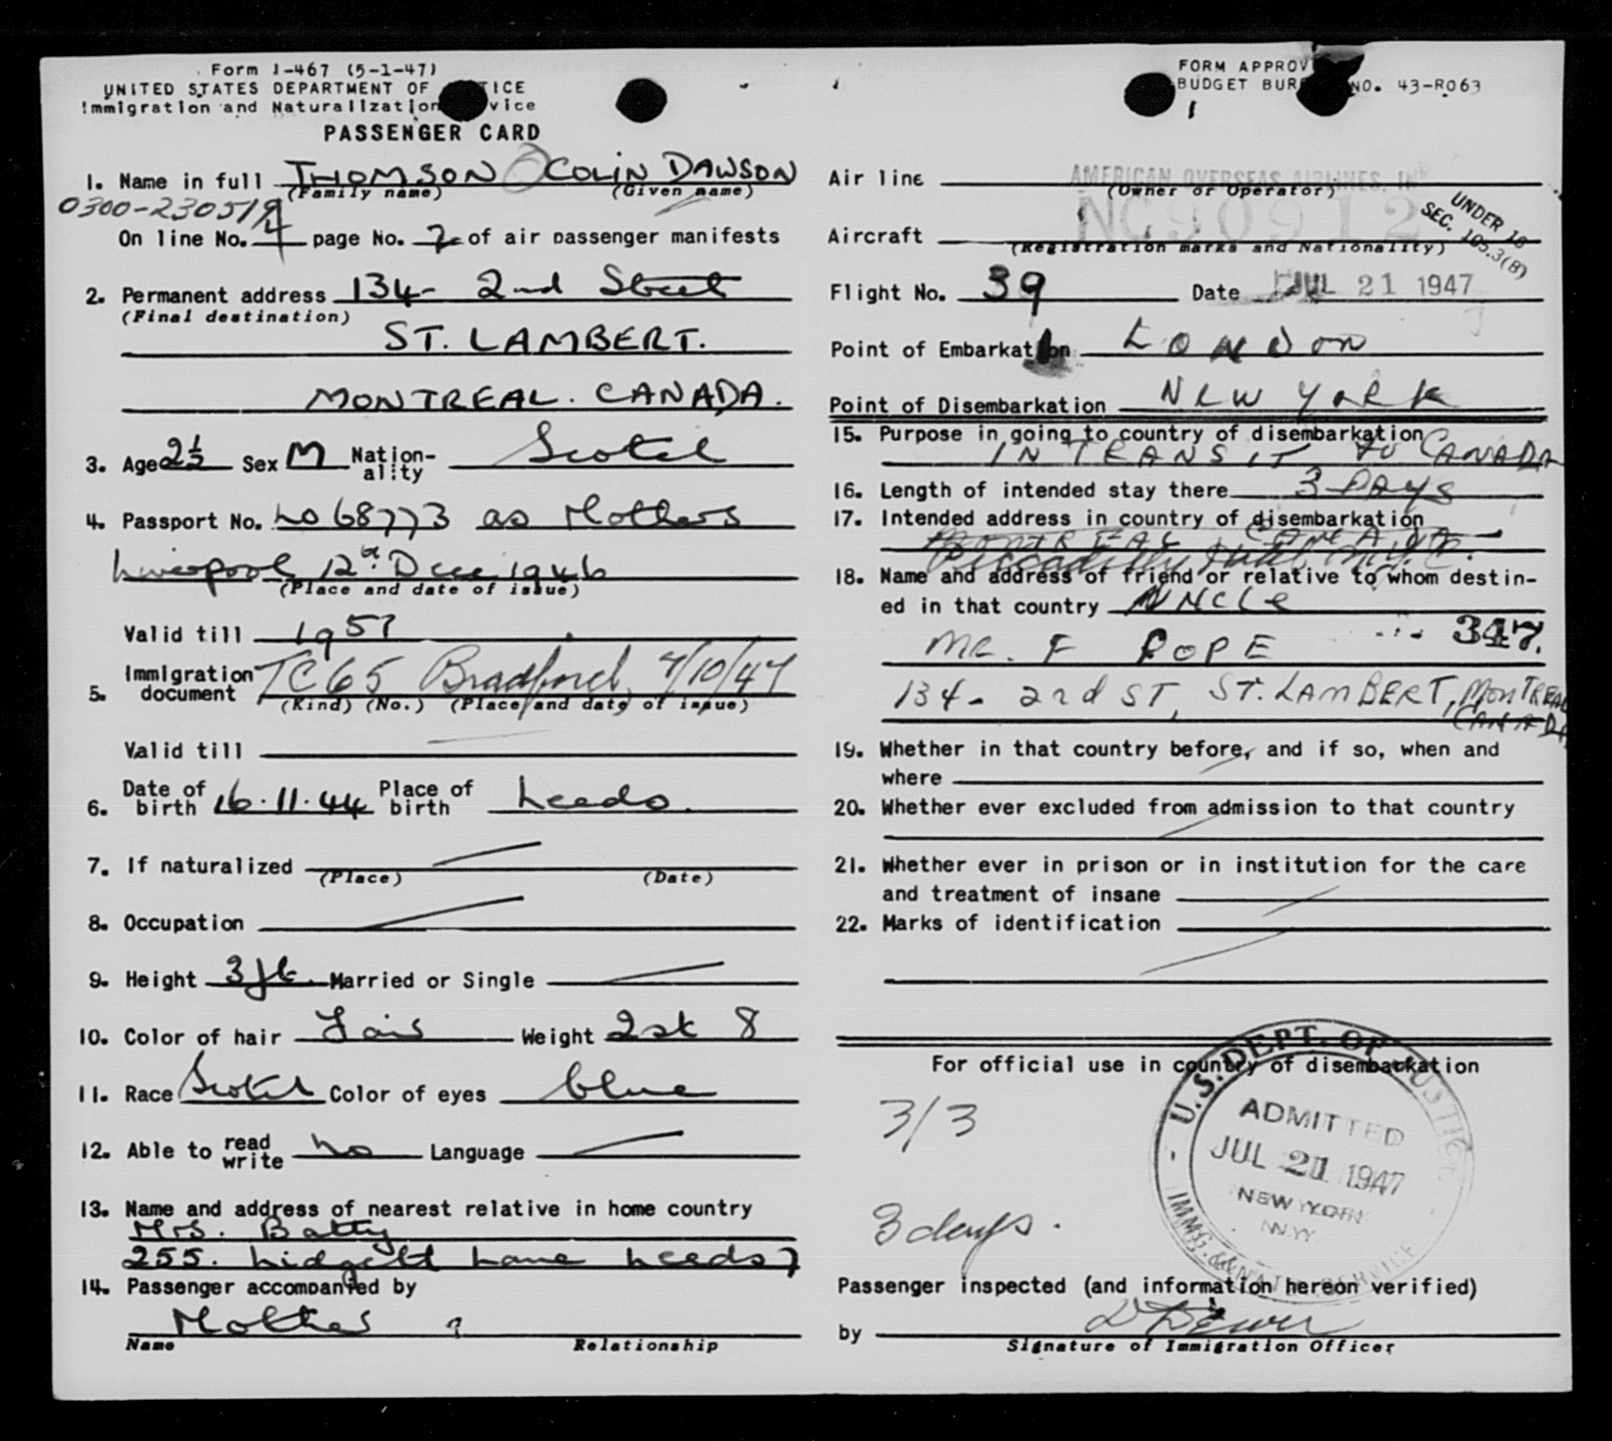 Form I-467 (5-1-47)
UNITED STATES DEPARTMENT OF TICE
Immigration and Naturalization vice
PASSENGER CARD
1. Name in full THOMSON COLIN DAWSON
(Family name) (Given name)
0300-230519
On line No. 4 page No. 2 of air passenger manifests
2. Permanent address 134- 2nd Street
(Final destination)
ST. LAMBERT.
MONTREAL. CANADA.
3. Age 2½ Sex M Nation-ality Scotch
4. Passport No. LO 68773 as Mothers
Liverpool 12th Dec 1946
(Place and date of issue)
Valid till 1951
5. Immigration document TC65 Bradford, 7/10/47
(Kind) (No.) (Place and date of issue)
Valid till
6. Date of birth 16.11.44 Place of birth Leeds.
7. If naturalized
(Place) (Date)
8. Occupation
9. Height 3ft. Married or Single
10. Color of hair Fair Weight 2st 8
11. Race Scotch Color of eyes blue
12. Able to read write No Language
13. Name and address of nearest relative in home country
Mrs. Batty
255. Lidgett Lane Leeds 7
14. Passenger accompanied by
Mother
Name Relationship
FORM APPROV
BUDGET BUR NO. 43-R063
Air line AMERICAN OVERSEAS AIRLINES, INC
(Owner or Operator)
UNDER 16
SEC. 105.3(B)
Aircraft NC90912
(Registration marks and Nationality)
Flight No. 39 Date JUL 21 1947
Point of Embarkation LONDON
Point of Disembarkation NEW YORK
15. Purpose in going to country of disembarkation
IN TRANSIT TO CANADA
16. Length of intended stay there 3 DAYS
17. Intended address in country of disembarkation
MONTREAL CANADA
Piccadilly Hotel N.Y.C.
18. Name and address of friend or relative to whom destin-
ed in that country UNCLE
MR. F POPE 347.
134- 2nd ST, ST. LAMBERT, MONTREAL
CANADA
19. Whether in that country before, and if so, when and
where
20. Whether ever excluded from admission to that country
21. Whether ever in prison or in institution for the care
and treatment of insane
22. Marks of identification
For official use in country of disembarkation
3/3
3 days.
U.S. DEPT. OF JUSTICE
ADMITTED
JUL 21 1947
NEW YORK
N.Y.
IMMIG. & NATZ. SERVICE
Passenger inspected (and information hereon verified)
by
Signature of Immigration Officer